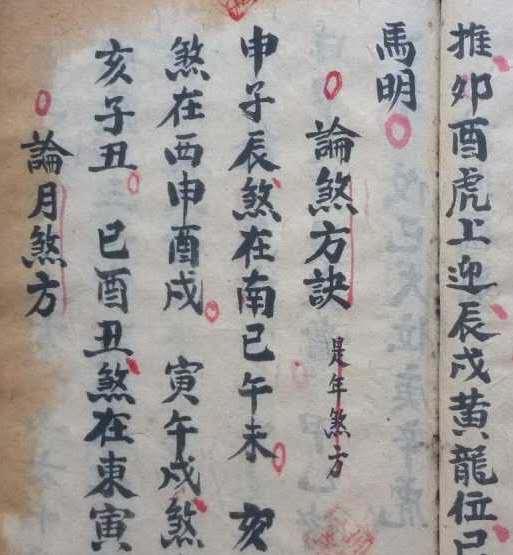 推卯酉虎上迎辰戌黃龍位
馬明
論煞方訣 是年煞方
申子辰煞在南巳午未 亥
煞在西申酉戌 寅午戌煞
亥子丑 巳酉丑煞在東寅
論月煞方